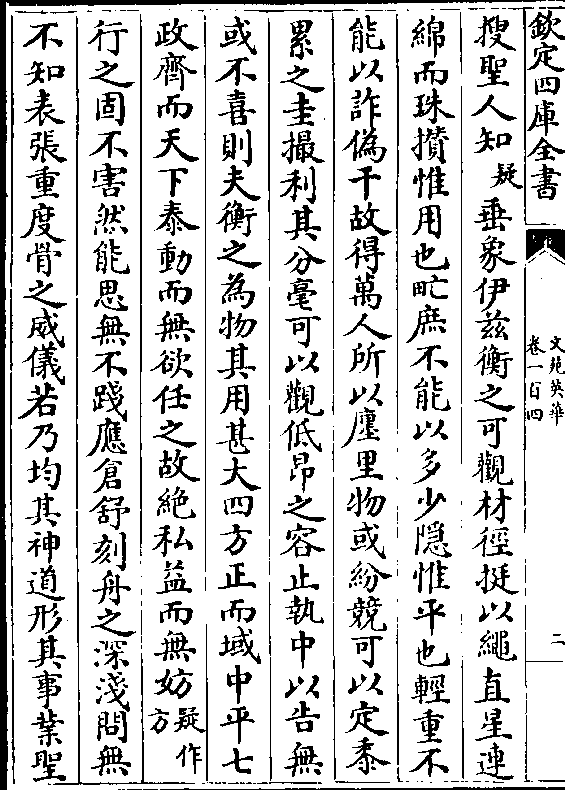 欽定四庫全書
文苑英華
卷一百四
二
搜聖人知疑垂象伊兹衡之可觀材徑挺以繩直星連
綿而珠攢惟用也甿庶不能以多少隐惟平也輕重不
能以詐偽干故得萬人所以廛里物或紛競可以定黍
累之圭撮利其分毫可以觀低昂之容止執中以告無
或不喜則夫衡之為物其用甚大四方正而域中平七
政齊而天下泰動而無欲任之故絶私益而無妨疑作方
行之固不害然能思無不踐應倉舒刻舟之深淺問無
不知表張重度骨之威儀若乃均其神道形其事業聖